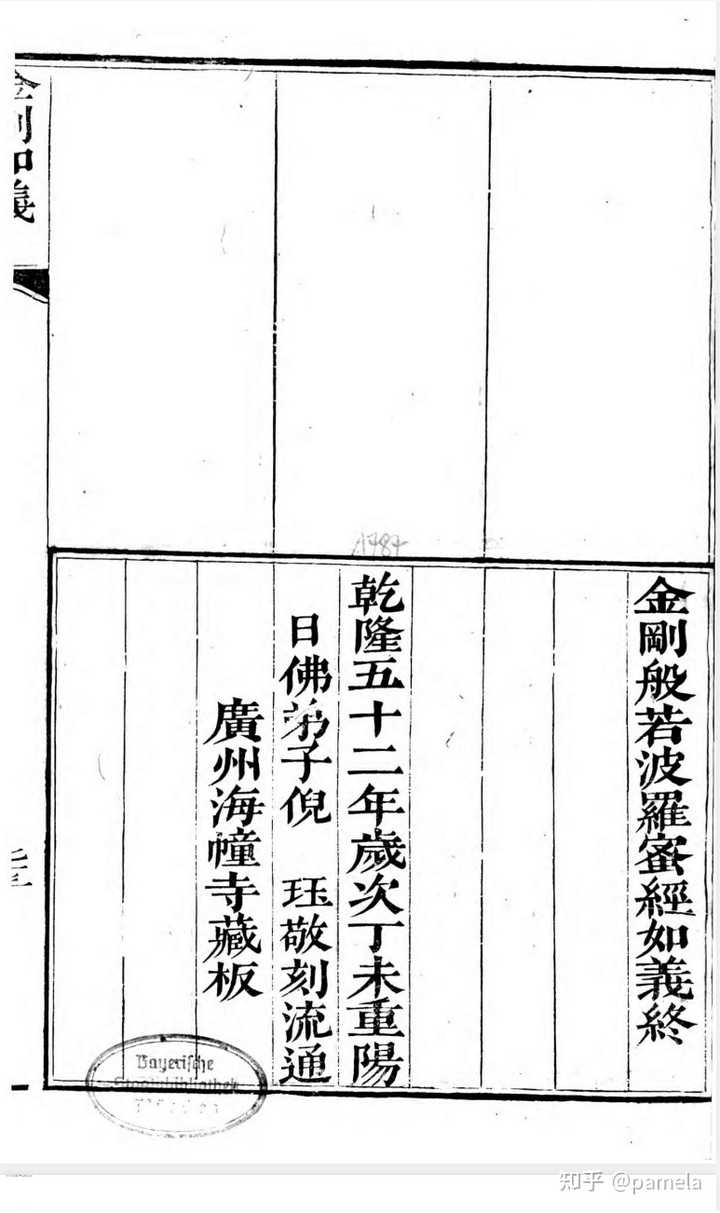 金剛般若波羅蜜經如義終
1787
乾隆五十二年歲次丁未重陽
日佛弟子倪 珏敬刻流通
廣州海幢寺藏板
金剛如義
Bayerische
Staatsbibliothek
知乎 @pamela